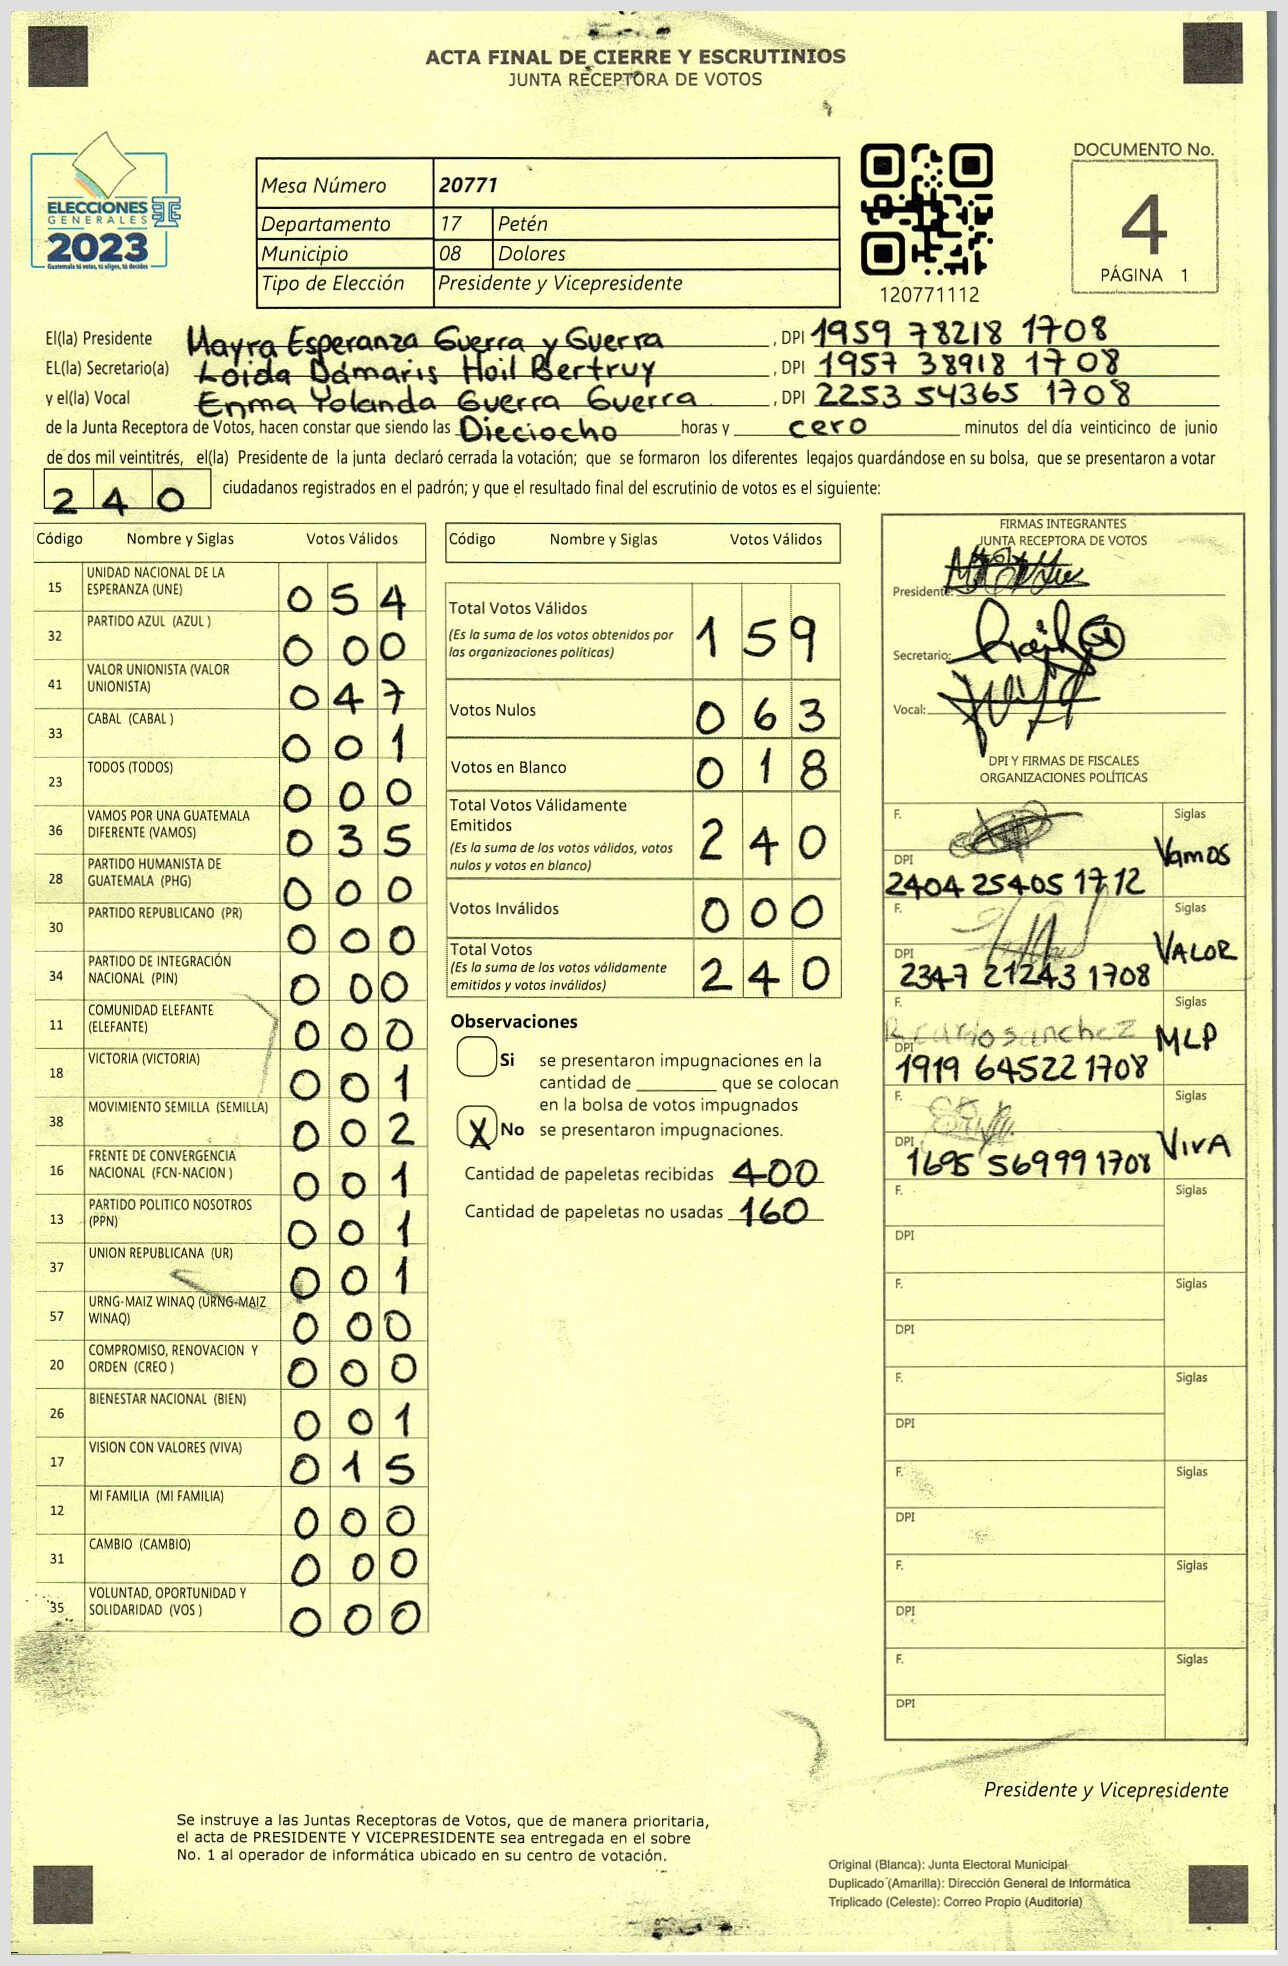 ACTA FINAL DE CIERRE Y ESCRUTINIOS
JUNTA RECEPTORA DE VOTOS
ELECCIONES
GENERALES
2023
Guatemala tú votas, tú eliges, tú decides
Mesa Número 20771
Departamento 17 Petén
Municipio 08 Dolores
Tipo de Elección Presidente y Vicepresidente
120771112
DOCUMENTO No.
4
PÁGINA 1
El(la) Presidente Mayra Esperanza Guerra y Guerra , DPI 1959 78218 1708
EL(la) Secretario(a) Loida Damaris Hoil Bertruy , DPI 1957 38918 1708
y el(la) Vocal Enma Yolanda Guerra Guerra , DPI 2253 54365 1708
de la Junta Receptora de Votos, hacen constar que siendo las Dieciocho horas y cero minutos del día veinticinco de junio
de dos mil veintitrés, el(la) Presidente de la junta declaró cerrada la votación; que se formaron los diferentes legajos guardándose en su bolsa, que se presentaron a votar
240 ciudadanos registrados en el padrón; y que el resultado final del escrutinio de votos es el siguiente:
Código Nombre y Siglas Votos Válidos
15 UNIDAD NACIONAL DE LA ESPERANZA (UNE) 054
32 PARTIDO AZUL (AZUL ) 000
41 VALOR UNIONISTA (VALOR UNIONISTA) 047
33 CABAL (CABAL ) 001
23 TODOS (TODOS) 000
36 VAMOS POR UNA GUATEMALA DIFERENTE (VAMOS) 035
28 PARTIDO HUMANISTA DE GUATEMALA (PHG) 000
30 PARTIDO REPUBLICANO (PR) 000
34 PARTIDO DE INTEGRACIÓN NACIONAL (PIN) 000
11 COMUNIDAD ELEFANTE (ELEFANTE) 000
18 VICTORIA (VICTORIA) 001
38 MOVIMIENTO SEMILLA (SEMILLA) 002
16 FRENTE DE CONVERGENCIA NACIONAL (FCN-NACION ) 001
13 PARTIDO POLITICO NOSOTROS (PPN) 001
37 UNION REPUBLICANA (UR) 001
57 URNG-MAIZ WINAQ (URNG-MAIZ WINAQ) 000
20 COMPROMISO, RENOVACION Y ORDEN (CREO ) 000
26 BIENESTAR NACIONAL (BIEN) 001
17 VISION CON VALORES (VIVA) 015
12 MI FAMILIA (MI FAMILIA) 000
31 CAMBIO (CAMBIO) 000
35 VOLUNTAD, OPORTUNIDAD Y SOLIDARIDAD (VOS ) 000
Código Nombre y Siglas Votos Válidos
Total Votos Válidos 159
(Es la suma de los votos obtenidos por
las organizaciones políticas)
Votos Nulos 063
Votos en Blanco 018
Total Votos Válidamente
Emitidos 240
(Es la suma de los votos válidos, votos
nulos y votos en blanco)
Votos Inválidos 000
Total Votos 240
(Es la suma de los votos válidamente
emitidos y votos inválidos)
Observaciones
Si se presentaron impugnaciones en la
cantidad de ________ que se colocan
en la bolsa de votos impugnados
X No se presentaron impugnaciones.
Cantidad de papeletas recibidas 400
Cantidad de papeletas no usadas 160
FIRMAS INTEGRANTES
JUNTA RECEPTORA DE VOTOS
Presidente:
Secretario:
Vocal:
DPI Y FIRMAS DE FISCALES
ORGANIZACIONES POLÍTICAS
F. Siglas
Vamos
DPI
2404 25405 1712
F. Siglas
VALOR
DPI
2347 21243 1708
F. Siglas
sanchez MLP
DPI
1919 64522 1708
F. Siglas
VIVA
DPI
1695 56999 1708
F. Siglas
DPI
F. Siglas
DPI
F. Siglas
DPI
F. Siglas
DPI
F. Siglas
DPI
F. Siglas
DPI
Presidente y Vicepresidente
Se instruye a las Juntas Receptoras de Votos, que de manera prioritaria,
el acta de PRESIDENTE Y VICEPRESIDENTE sea entregada en el sobre
No. 1 al operador de informática ubicado en su centro de votación.
Original (Blanca): Junta Electoral Municipal
Duplicado (Amarilla): Dirección General de Informática
Triplicado (Celeste): Correo Propio (Auditoria)